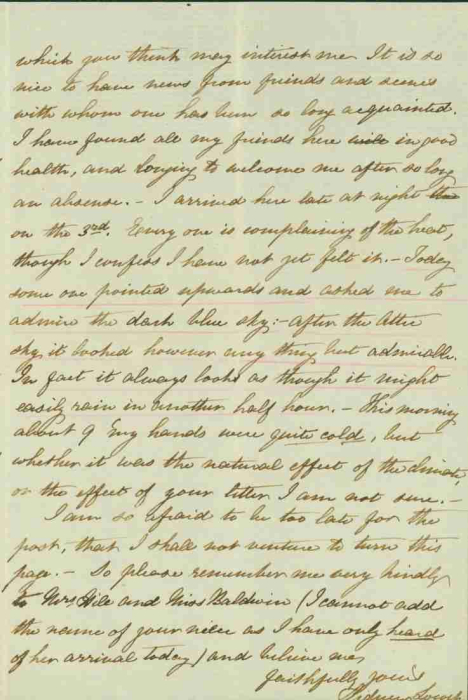 which you think may interest me. It is so
nice to have news from friends and scenes
with whom one has been so long acquainted.
I have found all my friends here in good
health, and longing to welcome me after so long
an absense. - I arrived here late at night
on the 3rd. Every one is complaining of the heat,
though I confess I have not yet felt it. - Today
some one pointed upwards and asked me to
admire the dark blue sky: - after the Attic
sky, it looked however any thing but admirable.
In fact it always looks as though it might
easily rain in another half hour. - This morning
about 9 my hands were quite cold, but
whether it was the natural effect of the climate,
or the effect of your letter I am not sure. -
I am so afraid to be too late for the
post, that I shall not venture to turn this
page. - So please remember me very kindly
to Mrs Hill and Miss Baldwin (I cannot add
the name of your niece as I have only heard
of her arrival today) and believe me,
faithfully yours